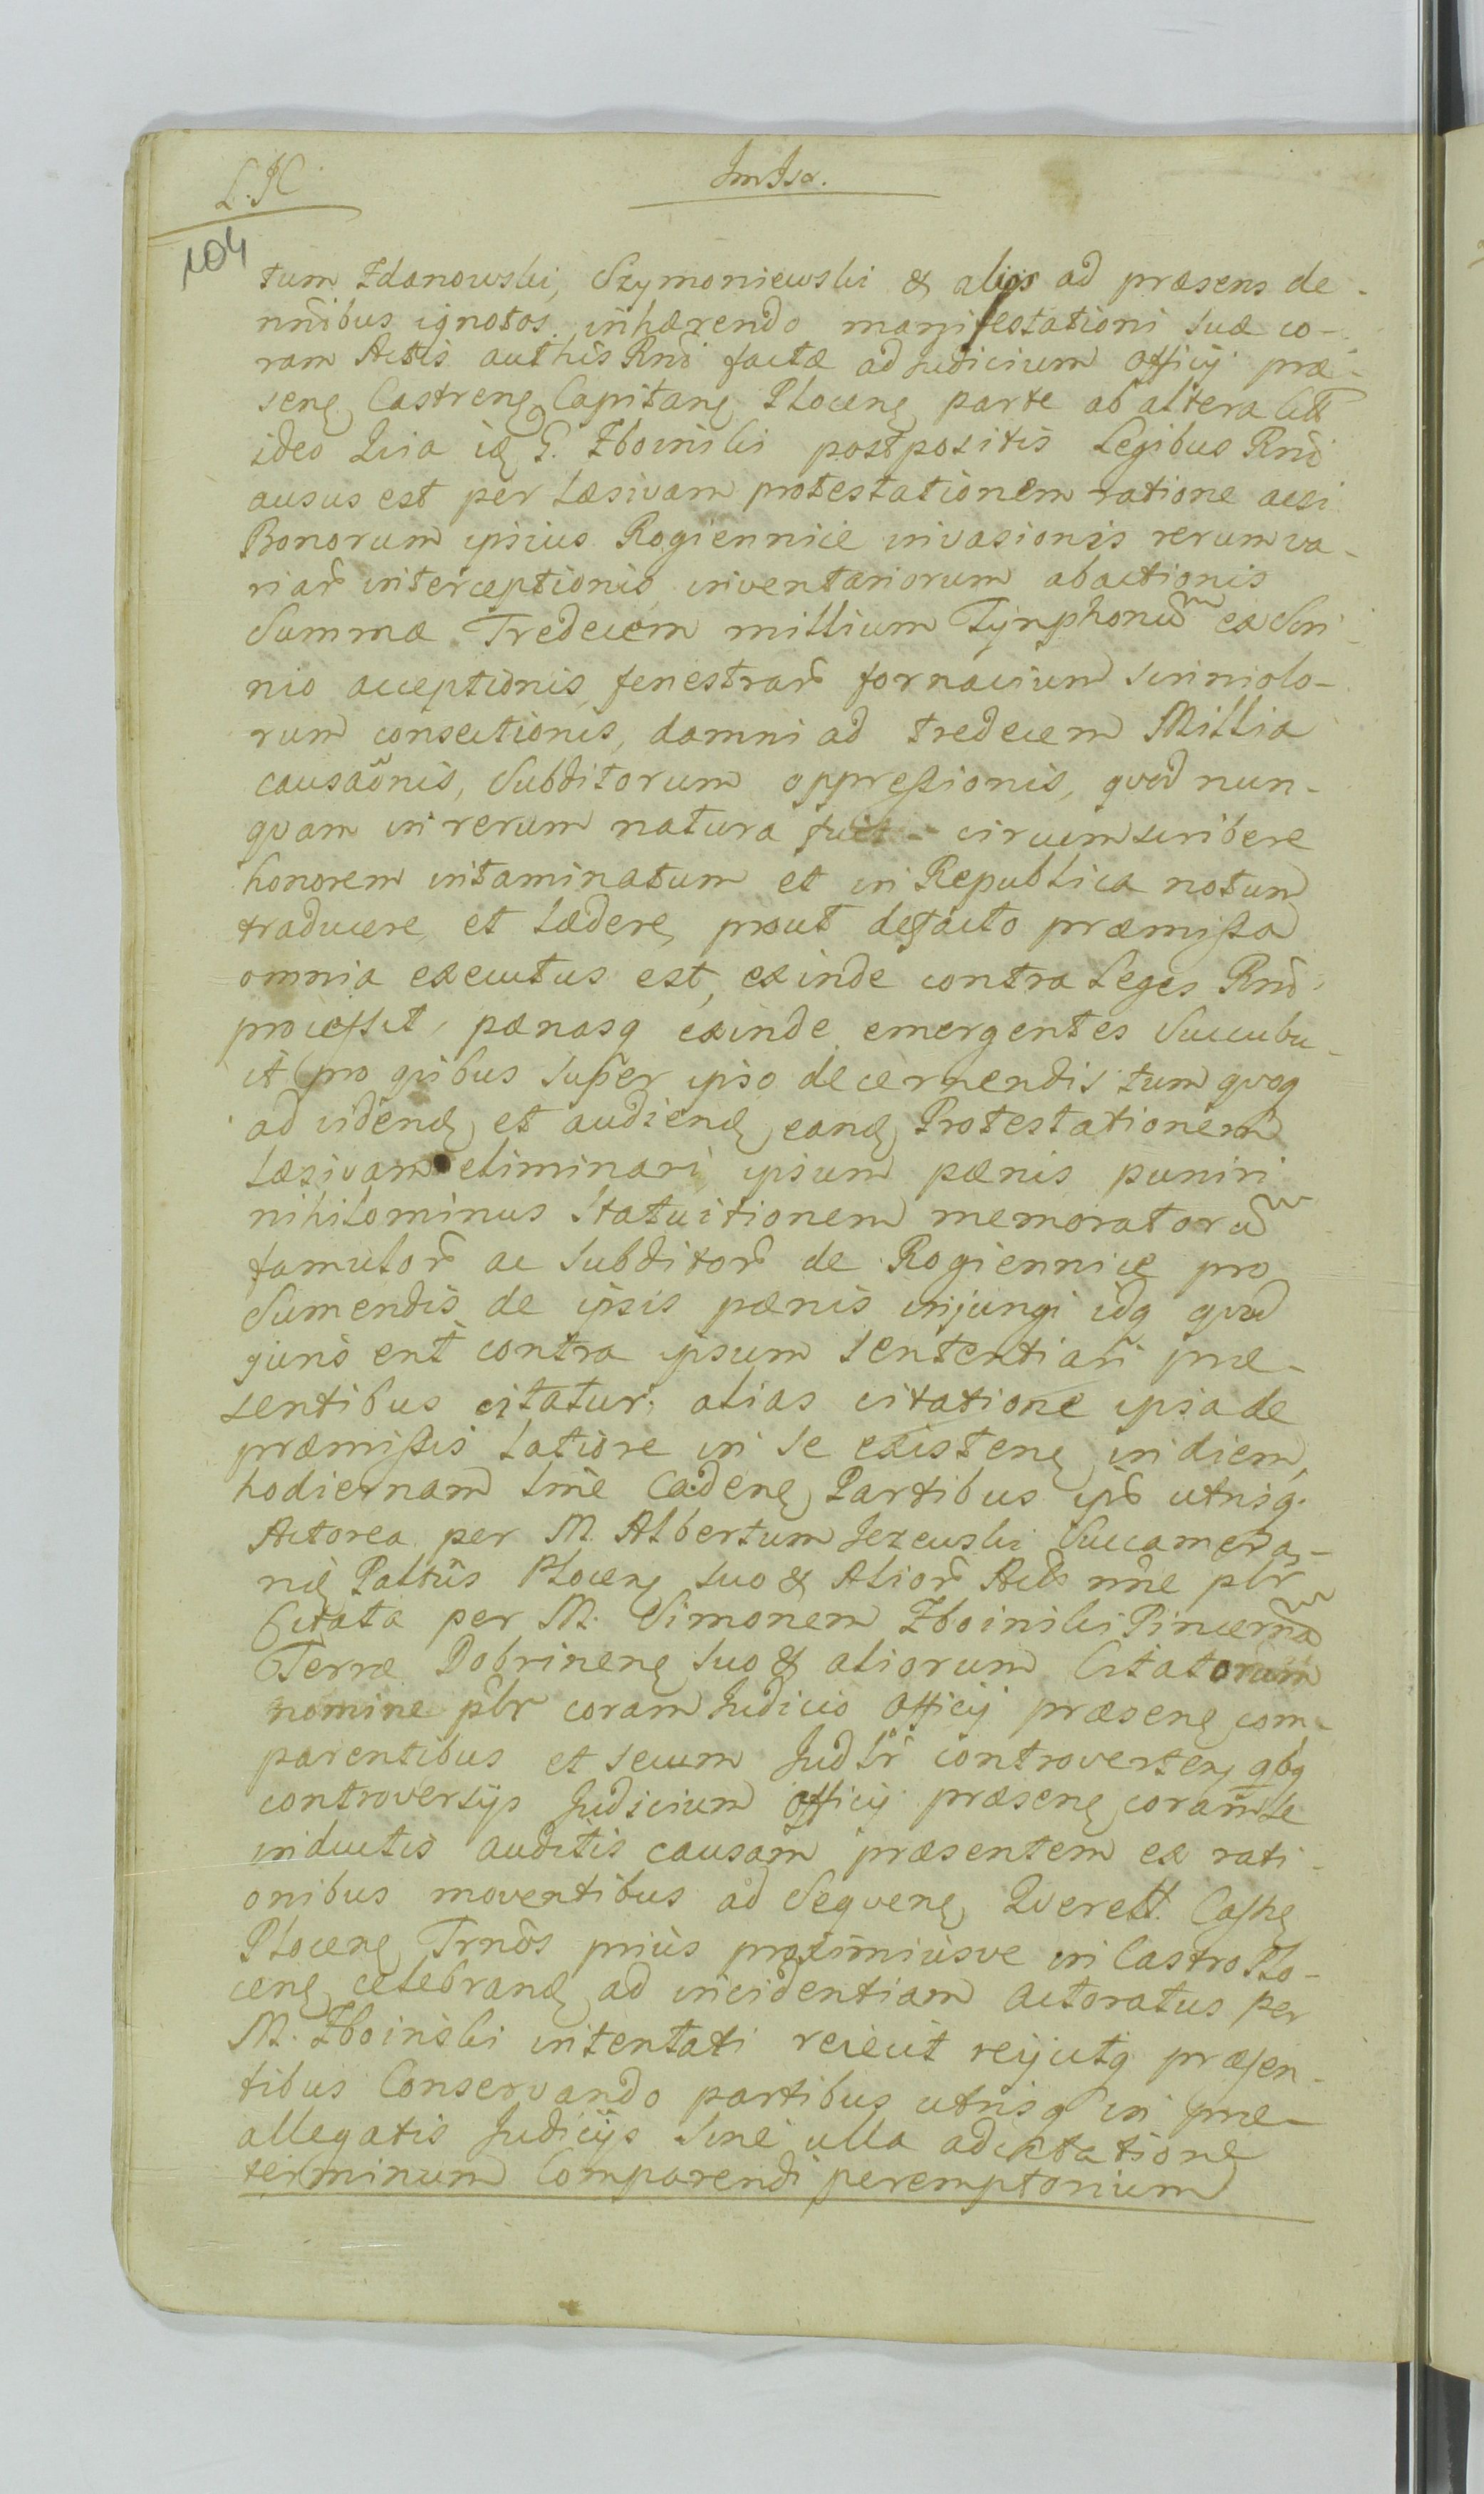 L. K.
104
tum Zdanowski, Szymoniewski & aliis ad præsens de-
nnibus ignotos inhærendo manifestationi suæ co-
ram Actis authis Rni factæ ad Judicium Officij præ-
senę Castrenę Capitanę Plocenę parte ab altera Citt
ideo Quia ię G. Zboinski postpositis Legibus Rni
ausus est per Læsivam protestationem ratione acsi
Bonorum ipsius Rogiennice invasionis rerum va-
riar interceptionis, inventariorum abactionis
Summæ Tredecem millium Tynphonū ex Scri-
nio acceptionis, fenestrar fornacium scriniolo-
rum consectionis, damni ad tredecem Millia
causaōnis, Subditorum oppressionis, quod nun-
quam in rerum natura fuit circumscribere
honorem intaminatum et in Republica notum
traducere, et lædere, prout defacto præmissa
omnia executus est, exinde contra Leges Rni
processit, pænasq exinde emergentes Succubu-
it pro quibus super ipso decernendis tum quoq
ad videnę et audienę eanę Protestationem
Læsivam eliminari, ipsum pænis puniri
nihilominus Statuitionem memoratorū
famulor ac Subditor de Rogiennice pro
Sumendis de ipsis pænis injungi idq quod
juris erit contra ipsum Sententiari præ-
sentibus citatur, alias citatione ipsa de
præmissis latiore in se existenę, in diem
hodiernam lme Cadenę Partibus ipr utrisq
Actorea per M. Albertum Jezewski Succamera-
rię Paltus Plocenę suo & Alior Act nne plr
Citata per M. Simonem Zboinski Pincernā
Terræ Dobrinenę suo & aliorum Citatorum
nomine plr coram Judicio Officij præsenę com-
parentibus et secum Judlr controvertenę qbq
controversijs Judicium Officij præsenę coram se
inductis auditis causam præsentem ex rati-
onibus moventibus ad Sequenę Querell. Casthę
Plocenę Trnos prius proximiusve in Castro Plo-
cenę celebranę ad incidentiam actoratus per
M. Zboinski intentati reiecit reijcitq præsen-
tibus Conservando partibus utrisq in præ-
allegatis Judicijs Sine ulla adcitatione
terminum Comparendi peremptorium